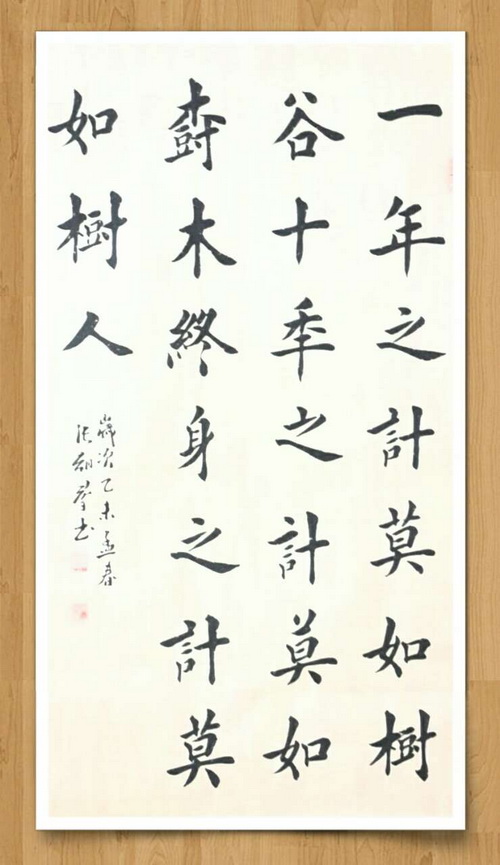 一年之計莫如樹
谷十秊之計莫如
樹木終身之計莫
如樹人
歲次乙未孟春
书